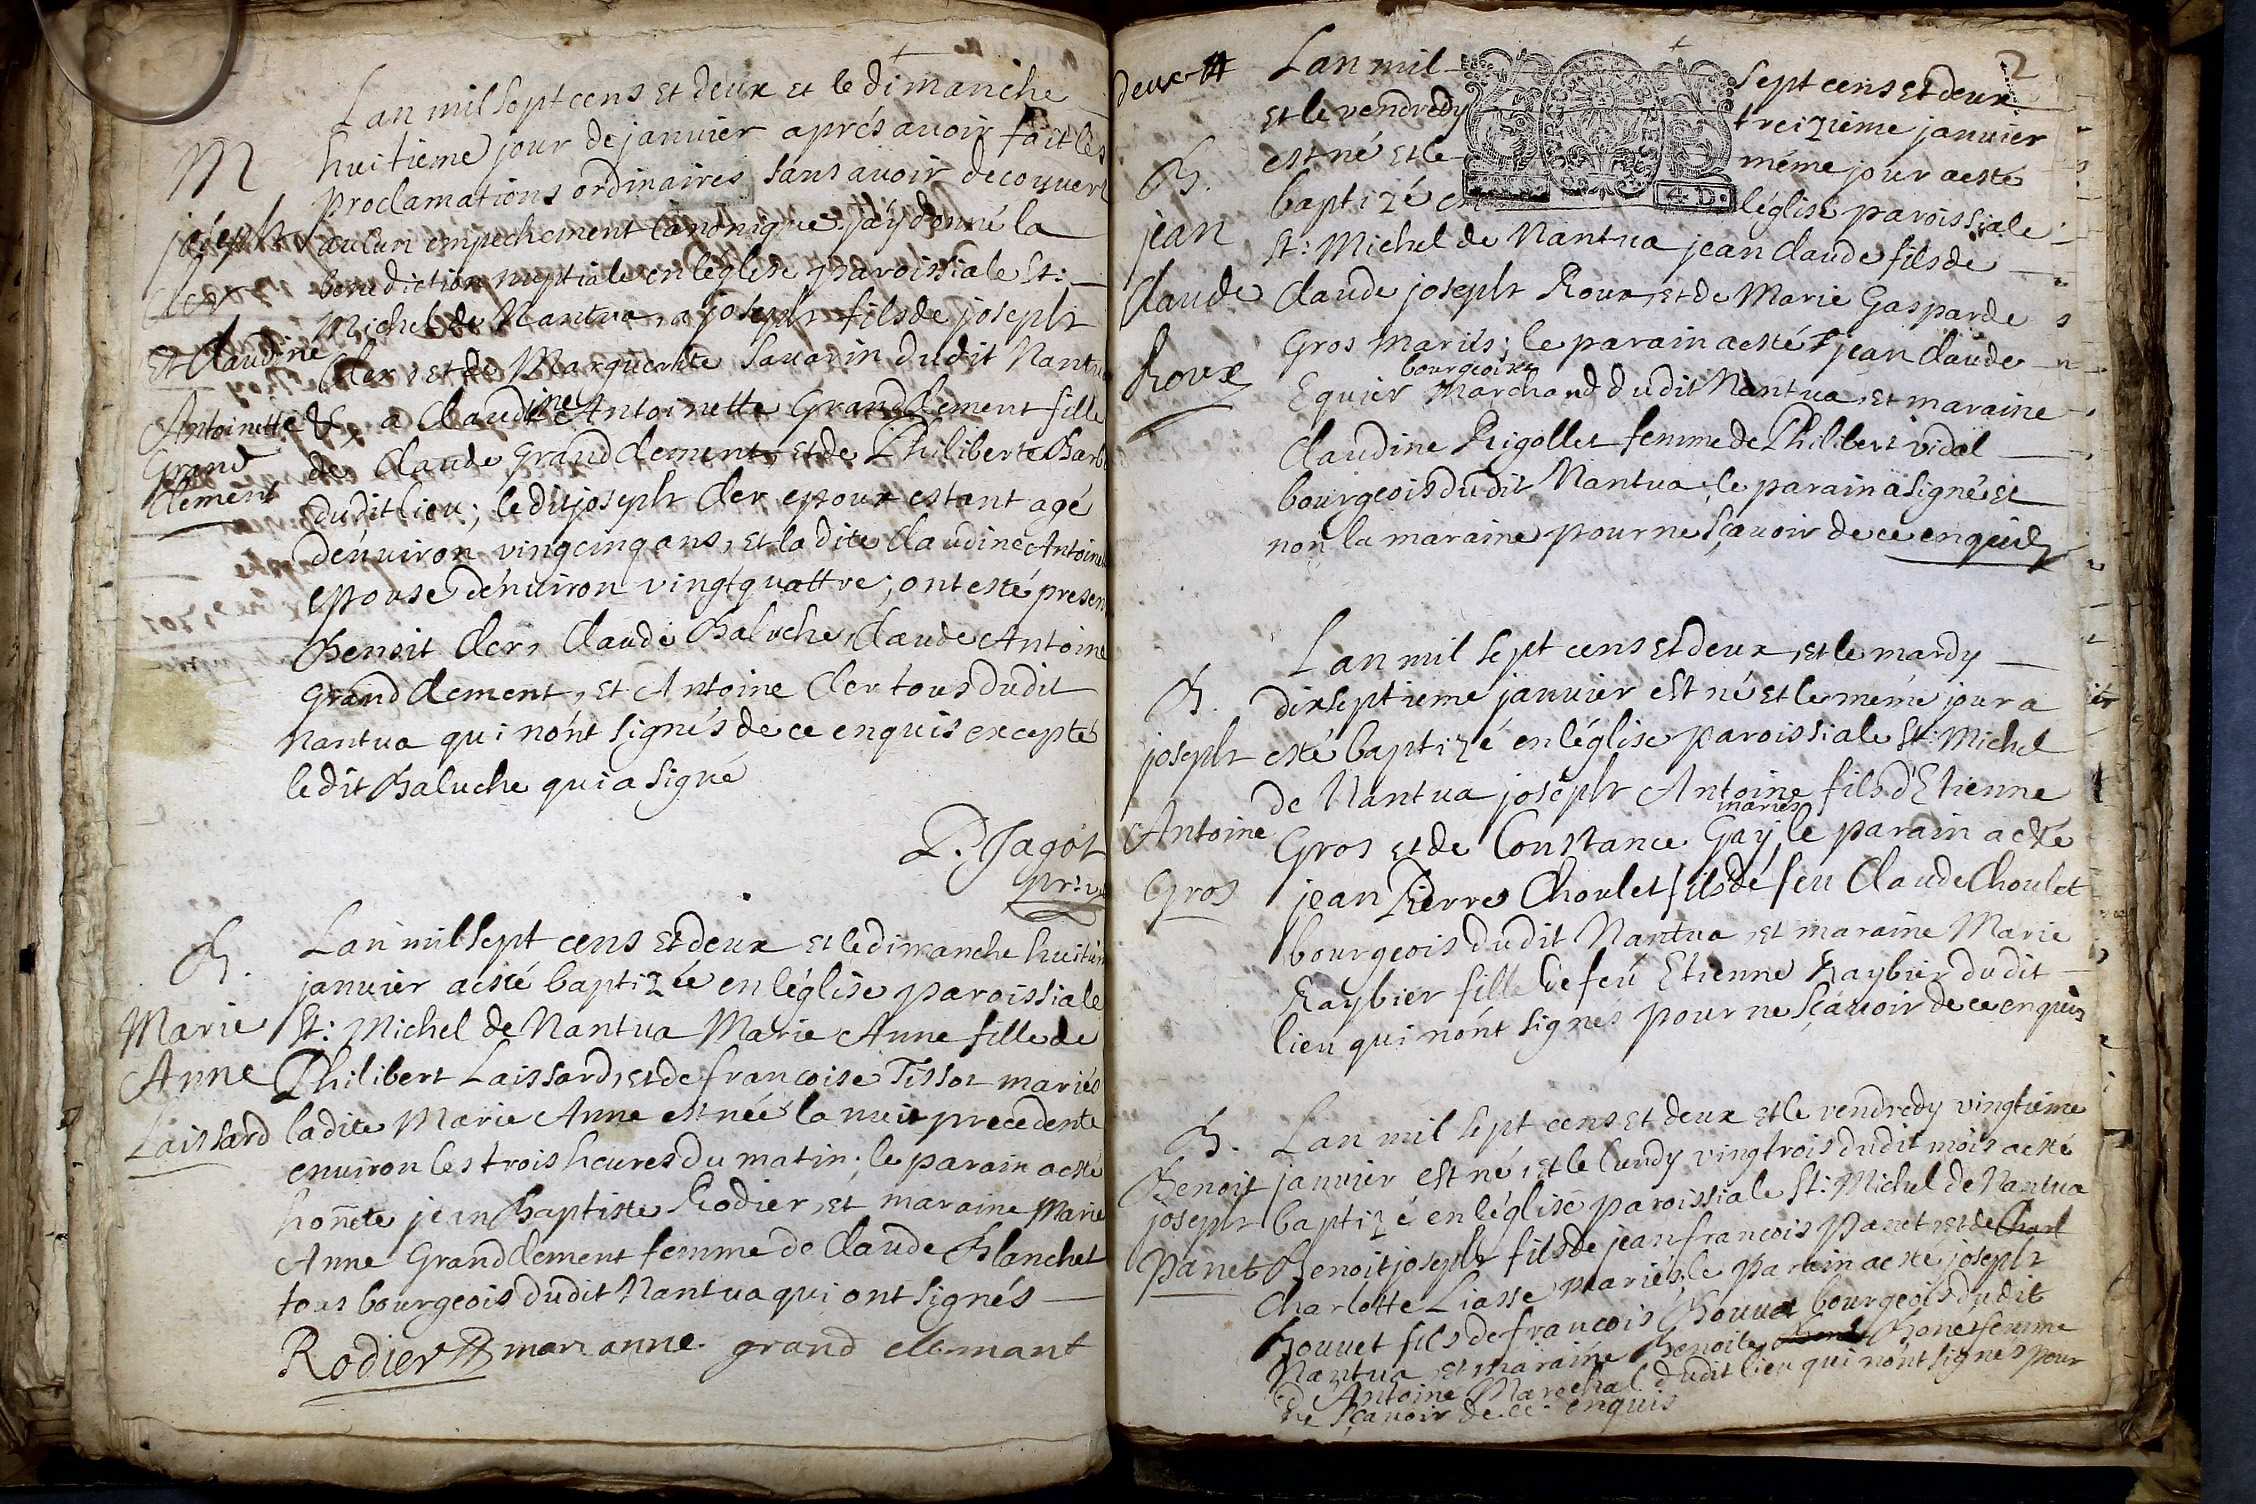 Lan mil sept cens et deux et le dimanche
M
huitieme jour de janvier aprés avoir fait les
proclamations ordinaires sans avoir decouvert
joseph
aucun empechement canonique j'ay donné la
Cler
benediction nuptiale en leglise paroissiale St:
Michel de Nantua, a joseph fils de joseph
Et Claudine
Cler, et de Marguerite Savarin dudit Nantua
Antoinette
&, a Claudine Antoinette Grandclement fille
Grand
de Claude Grandclement, et de Philiberte
clement
dudit lieu; ledit joseph Cler epoux estant agé
denviron vingcinq ans, et la dite Claudine Antoinette
epouse denviron vingtquattre; ont esté presen
Benoit Cler, Claude Baluche, Claude Antoine
Grandclement, et Antoine Cler tous dudit
Nantua qui nónt signés de ce enquis excepté
ledit Baluche qui a signé
P. Jagot
B.
Lan mil sept cens et deux et le dimanche huitiem
janvier a esté baptizée en léglise paroissiale
Marie
St: Michel de Nantua Marie Anne fille de
Anne
Philibert Laissard, et de francoise Tissot mariés
Laissard
ladite Marie Anne est née la nuit precedente
environ les trois heures du matin; le parain a esté
honnete jean Baptiste Rodier, et maraine Marie
Anne Grandclement femme de Claude Blanchet
tous bourgeois dudit Nantua qui ont signés
Rodier marianne grand clemant
deux
2
Lan mil sept cens et deux
et le vendredy treizieme janvier
B.
est né et le méme jour a esté
baptizé en léglise paroissiale
4 D.
jean
St: Michel de Nantua jean Claude fils de
Claude
Claude joseph Roux, et de Marie Gasparde
Gros mariés; le parain a esté jean Claude
Roux
bourgeois
Equier Marchand dudit Nantua, et maraine
Claudine Rigollet femme de Philibert vidal
bourgeois dudit Nantua, le parain a signé et
non la maraine pour ne sçavoir de ce enquise
Lan mil sept cens et deux, et le mardy
B.
dixseptieme janvier est né et le méme jour a
joseph
esté baptizé en léglise paroissiale St: Michel
de Nantua joseph Antoine fils d'Etienne
Antoine
mariés
Gros et de Constance Gay, le parain a esté
Gros
jean Pierre Choulet fils de feu Claude Choulet
bourgeois dudit Nantua, et maraine Marie
Raybier fille de feu Etienne Raybier dudit
lieu qui nónt signés pour ne sçavoir de ce enquis
B.
Lan mil sept cens et deux et le vendredy vingtieme
Benoit
janvier est né, et le lundy vingtrois dudit mois a esté
joseph
baptizé en léglise paroissiale St: Michel de Nantua
Panet
Benoit joseph fils de jean francois Panet, et de Charl
Charlotte Liasse mariés, le parain a esté joseph
Bouvet fils de francois Bouvet bourgeois dudit
Nantua, et maraine Benoite Bonet femme
de Antoine Marechal dudit lieu qui nónt signés pour
ne sçavoir de ce enquis